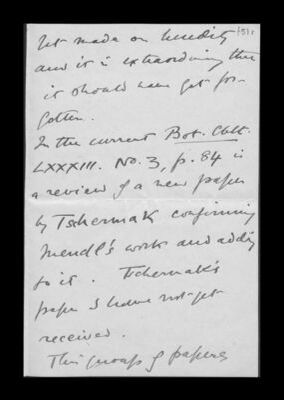 yet made on heredity
and it is extraordinary that
it should have got for-
gotten.
In the current Bot. Cbltt.
LXXXIII. No. 3, p. 84 is
a review of a new paper
by Tschermak confirming
Mendl's work and adding
to it. Tschermak's
paper I have not yet
received.
This group of papers